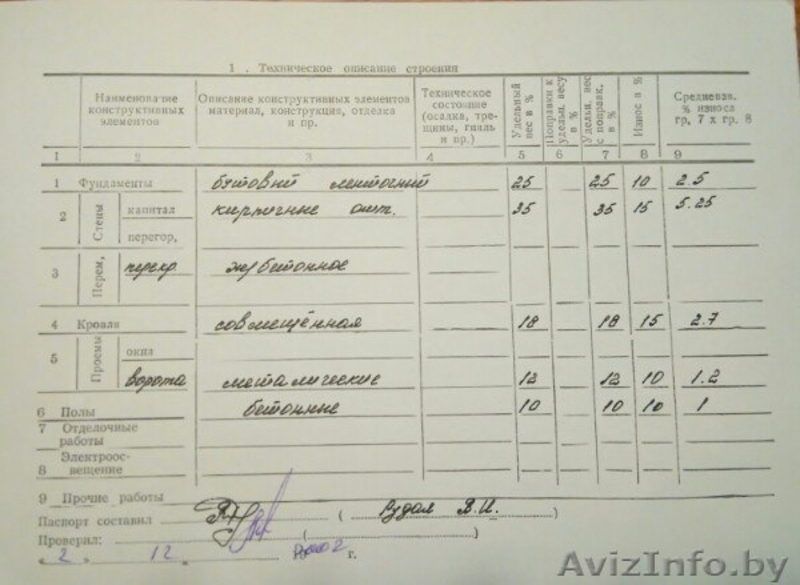 1 . Техническое описание строения
Наименование конструктивных элементов
Описание конструктивных элементов материал, конструкция, отделка и пр.
Техническое состояние (осадка, трещины, гниль и пр.)
Удельный вес в %
Поправки к удельн. весу в %
Удельн. вес с поправк. в %
Износ в %
Средневзв. % износа гр, 7 х гр. 8
1 2 3 4 5 6 7 8 9
1 Фундаменты бутовый ленточный 25 25 10 2.5
2 Стены капитал кирпичные 35 35 15 5.25
перегор,
3 Перем, перекр. ж/бетонное
4 Кровля совмещённая 18 18 15 2.7
5 Проемы окна
ворота металические 12 12 10 1.2
6 Полы бетонные 10 10 10 1
7 Отделочные работы
8 Электроосвещение
9 Прочие работы
Паспорт составил ( Рудол В.И. )
Проверил: ( )
" 2 " 12 2002 г.
AvizInfo.by